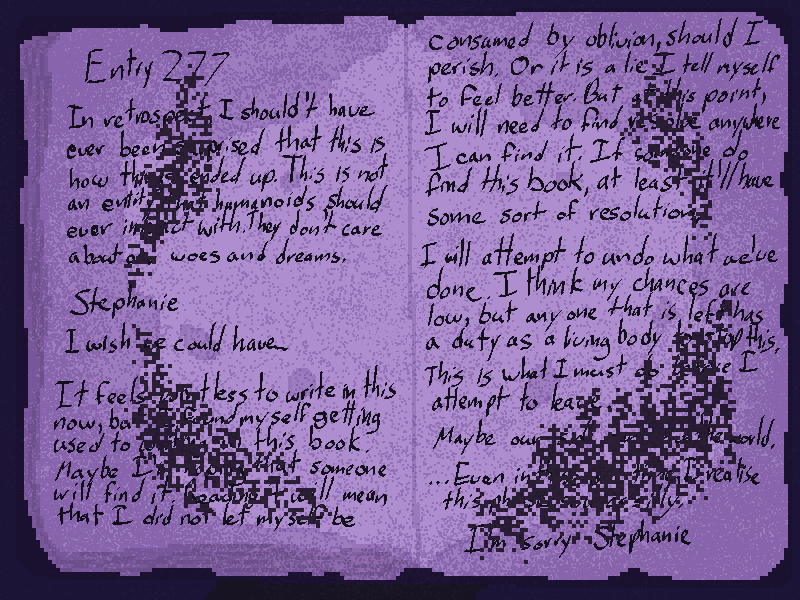 Entry 277
In retrospect I should't have
ever been surprised that this is
how this ended up. This is not
an entity that humanoids should
ever interact with. They don't care
about our woes and dreams.
Stephanie
I wish we could have...
It feels pointless to write in this
now, but I found myself getting
used to this book.
Maybe I'm hoping that someone
will find it. Reading it will mean
that I did not let myself be
consumed by oblivion, should I
perish. Or it is a lie I tell myself
to feel better. But at this point,
I will need to find resolve anywere
I can find it. If someone do
find this book, at least it'll have
some sort of resolution.
I will attempt to undo what we've
done. I think my chances are
low, but any one that is left has
a duty as a living body to stop this.
This is what I must do before I
attempt to leave.
Maybe our the world.
...Even in I realise
this
I'm sorry Stephanie